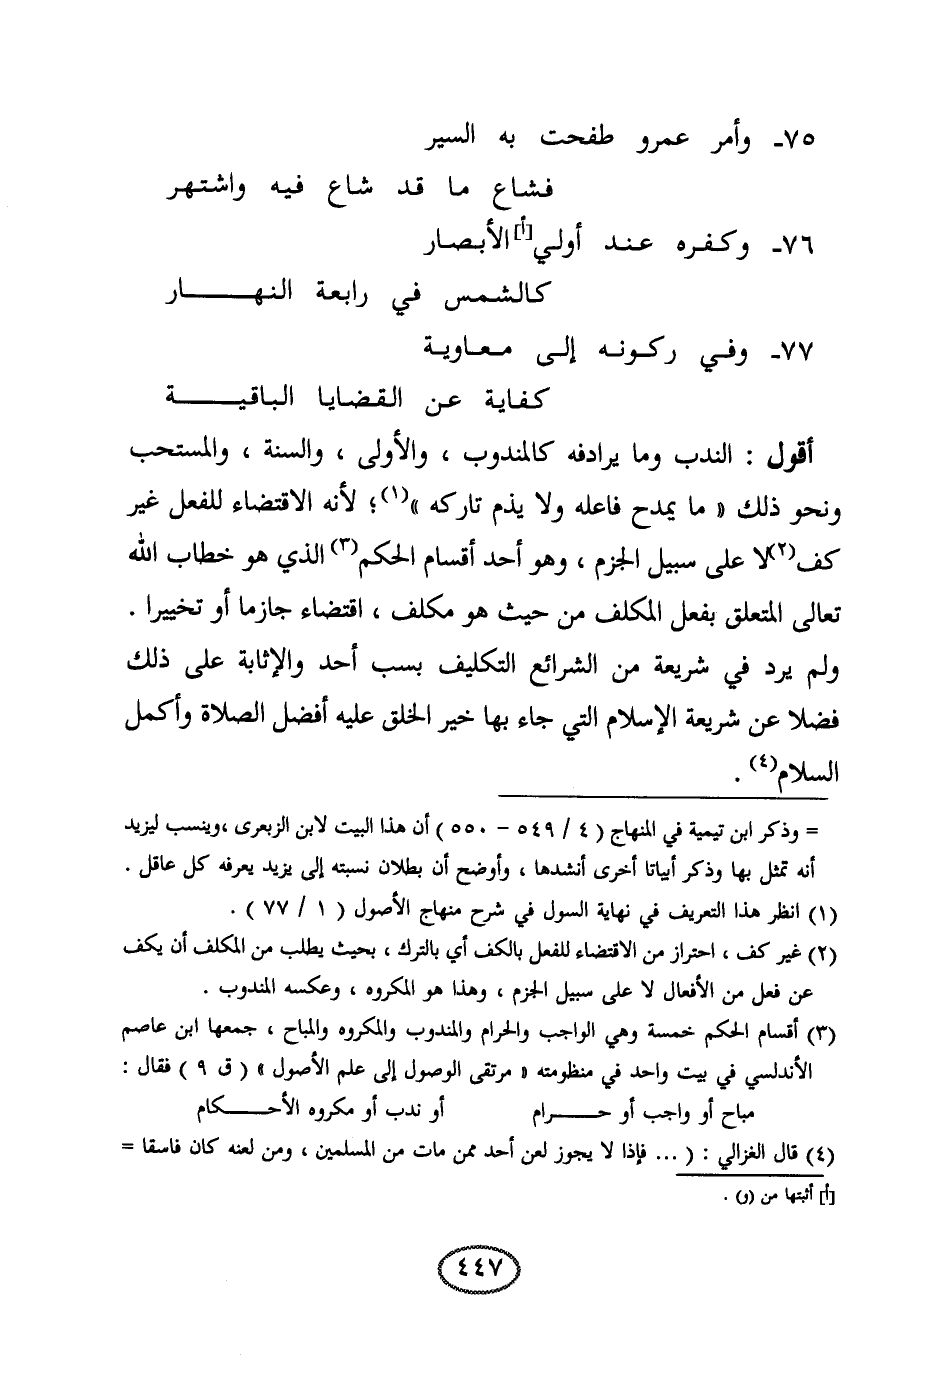 ٧٥ـ وأمر عمرو طفحت به السير
فشاع ما قد شاع فيه واشتهر
٧٦ـ وكفره عند أولي[أ] الأبصار
كالشمس في رابعة النهـــــار
٧٧ـ وفي ركونه إلى معاوية
كفاية عن القضايا الباقيـــــة
أقول : الندب وما يرادفه كالمندوب ، والأولى ، والسنة ، والمستحب
ونحو ذلك « ما يمدح فاعله ولا يذم تاركه »(١)؛ لأنه الاقتضاء للفعل غير
كف(٢)لا على سبيل الجزم ، وهو أحد أقسام الحكم(٣) الذي هو خطاب الله
تعالى المتعلق بفعل المكلف من حيث هو مكلف ، اقتضاء جازما أو تخييرا .
ولم يرد في شريعة من الشرائع التكليف بسب أحد والإثابة على ذلك
فضلا عن شريعة الإسلام التي جاء بها خير الخلق عليه أفضل الصلاة وأكمل
السلام(٤) .
= وذكر ابن تيمية في المنهاج ( ٤ / ٥٤٩ – ٥٥٠ ) أن هذا البيت لابن الزبعرى ،وينسب ليزيد
أنه تمثل بها وذكر أبياتا أخرى أنشدها ، وأوضح أن بطلان نسبته إلى يزيد يعرفه كل عاقل .
(١) انظر هذا التعريف في نهاية السول في شرح منهاج الأصول ( ١ / ٧٧ ) .
(٢) غير كف ، احتراز من الاقتضاء للفعل بالكف أي بالترك ، بحيث يطلب من المكلف أن يكف
عن فعل من الأفعال لا على سبيل الجزم ، وهذا هو المكروه ، وعكسه المندوب .
(٣) أقسام الحكم خمسة وهي الواجب والحرام والمندوب والمكروه والمباح ، جمعها ابن عاصم
الأندلسي في بيت واحد في منظومته « مرتقى الوصول إلى علم الأصول » ( ق ٩ ) فقال :
مباح أو واجب أو حـــــرام أو ندب أو مكروه الأحـــــكام
(٤) قال الغزالي : ( ... فإذا لا يجوز لعن أحد ممن مات من المسلمين ، ومن لعنه كان فاسقا =
[أ] أثبتها من (و) .
٤٤٧